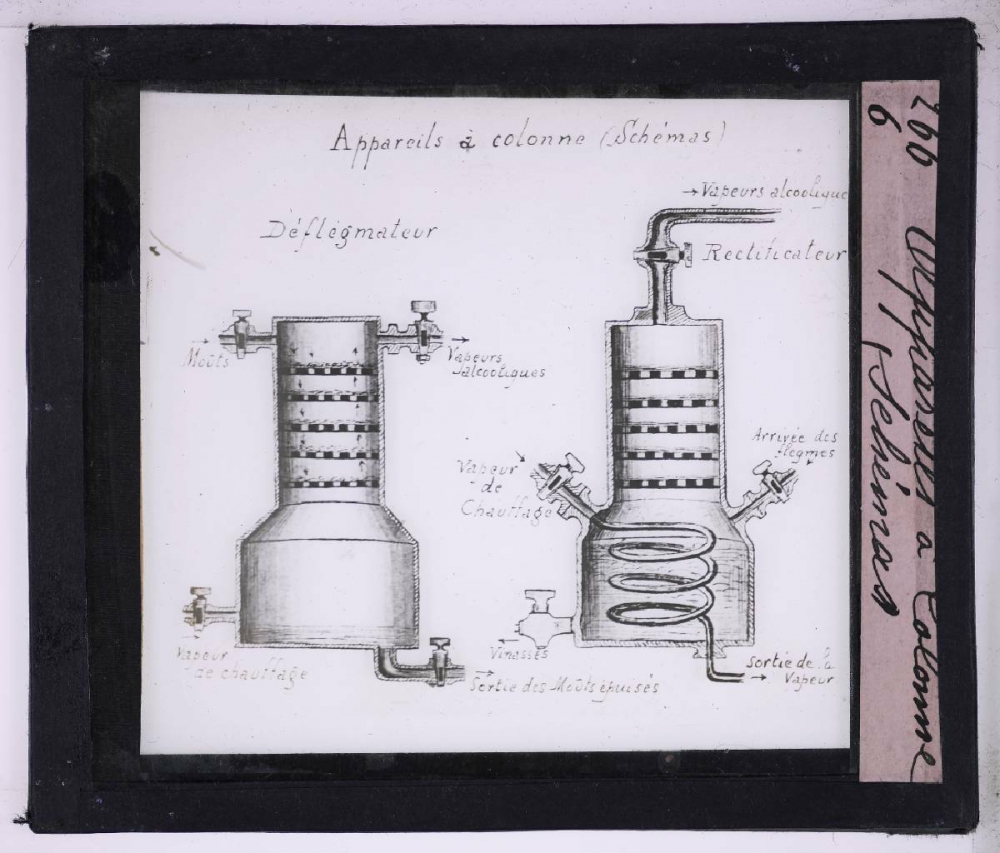 Appareils à colonne (Schémas)
Déflégmateur
Moûts
Vapeurs
alcooliques
Vapeur
de chauffage
Sortie des Moûts épuisés
Vapeurs alcoolique
Rectificateur
Vapeur
de
Chauffage
Arrivée des
flegmes
Vinasses
Sortie de la
Vapeur
266 Appareils à Colonne
6 (Schémas